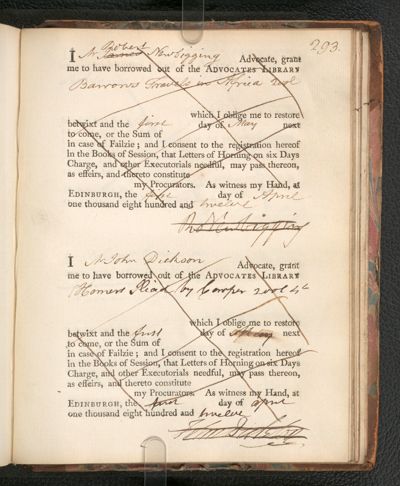 293.
Robert
I Mr. James Newbigging Advocate, grant
me to have borrowed out of the ADVOCATES LIBRARY
Barrow's Travels in Africa 2 vol
which I oblige me to restore
betwixt and the first day of May next
to come, or the Sum of
in case of Failzie ; and I consent to the registration hereof
in the Books of Session, that Letters of Horning on six Days
Charge, and other Executorials needful, may pass thereon,
as effeirs, and thereto constitute
my Procurators. As witness my Hand, at
EDINBURGH, the first day of April
one thousand eight hundred and twelve
I Mr John Dickson Advocate, grant
me to have borrowed out of the ADVOCATES LIBRARY
Homers Iliad by Cowper 2 vol 4to
which I oblige me to restore
betwixt and the first day of May next
to come, or the Sum of
in case of Failzie ; and I consent to the registration hereof
in the Books of Session, that Letters of Horning on six Days
Charge, and other Executorials needful, may pass thereon,
as effeirs, and thereto constitute
my Procurators. As witness my Hand, at
EDINBURGH, the first day of April
one thousand eight hundred and twelve